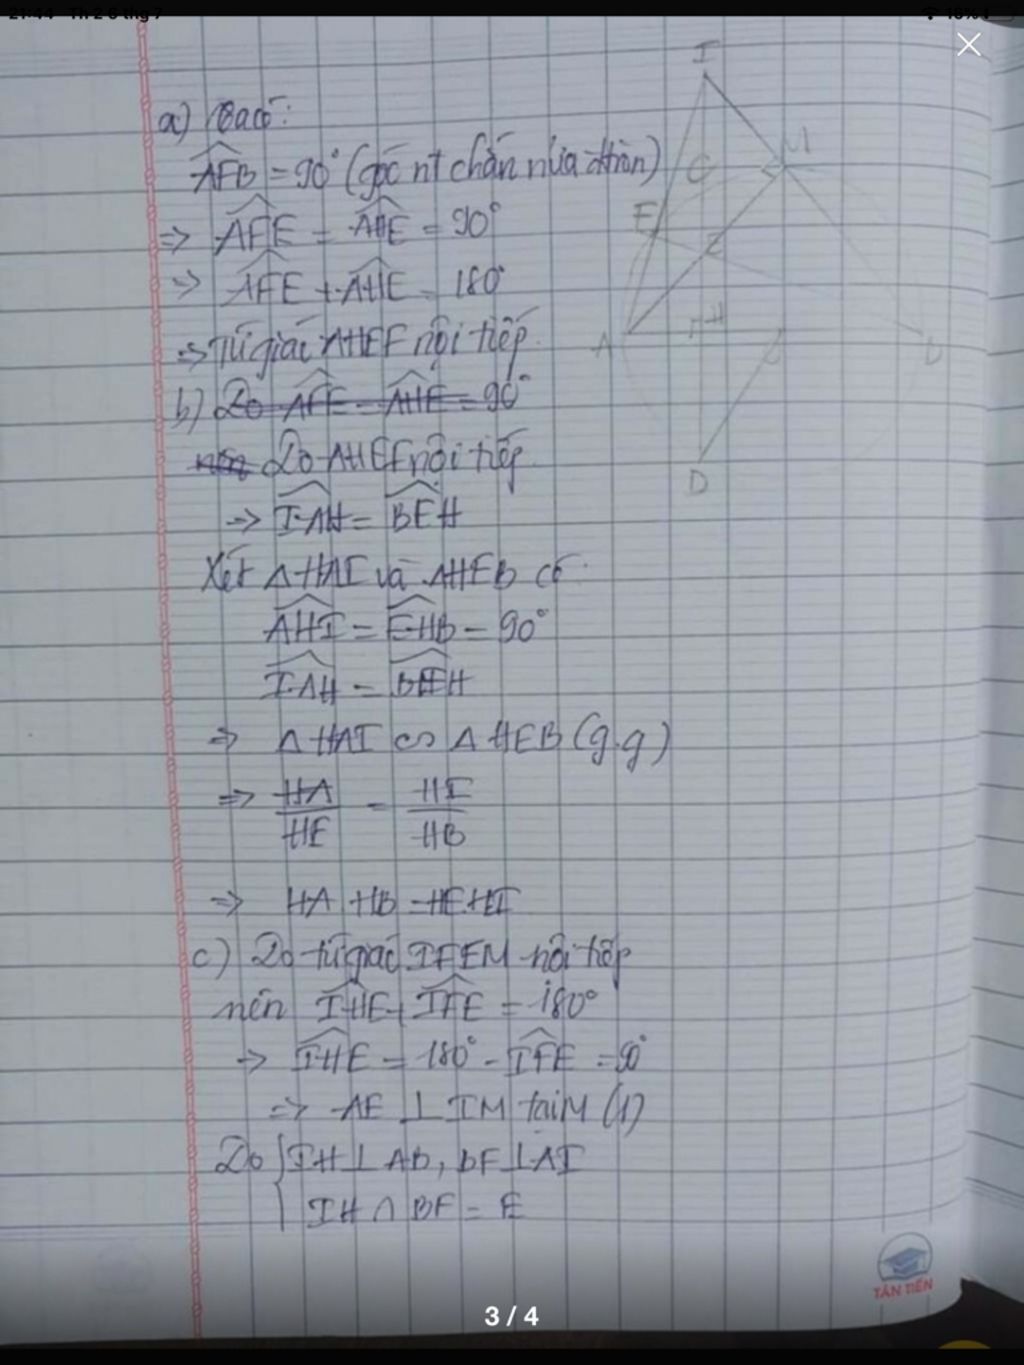 21:44 Th 2 6 thg 7
16%
a) Ta có:
AFB = 90° (góc nt chắn nửa đtròn)
=> AFE = AHE = 90°
=> AFE + AHE = 180°
=> Tứ giác AHEF nội tiếp.
b) Do AFE = AHE = 90°
nên Do AHEF nội tiếp.
=> IAH = BEH
Xét ΔHAI và ΔHEB có:
AHI = EHB = 90°
IAH = BEH
=> ΔHAI ∽ ΔHEB (g.g)
=> HA/HE = HI/HB
=> HA.HB = HE.HI
c) Do tứ giác IFEM nội tiếp
nên IHE + IFE = 180°
=> IHE = 180° - IFE = 90°
=> AE ⊥ IM tại M (1)
Do { IH ⊥ AB, BF ⊥ AI
IH ∩ BF = E
I
M
C
F
E
A
H
D
TÂN TIẾN
3 / 4